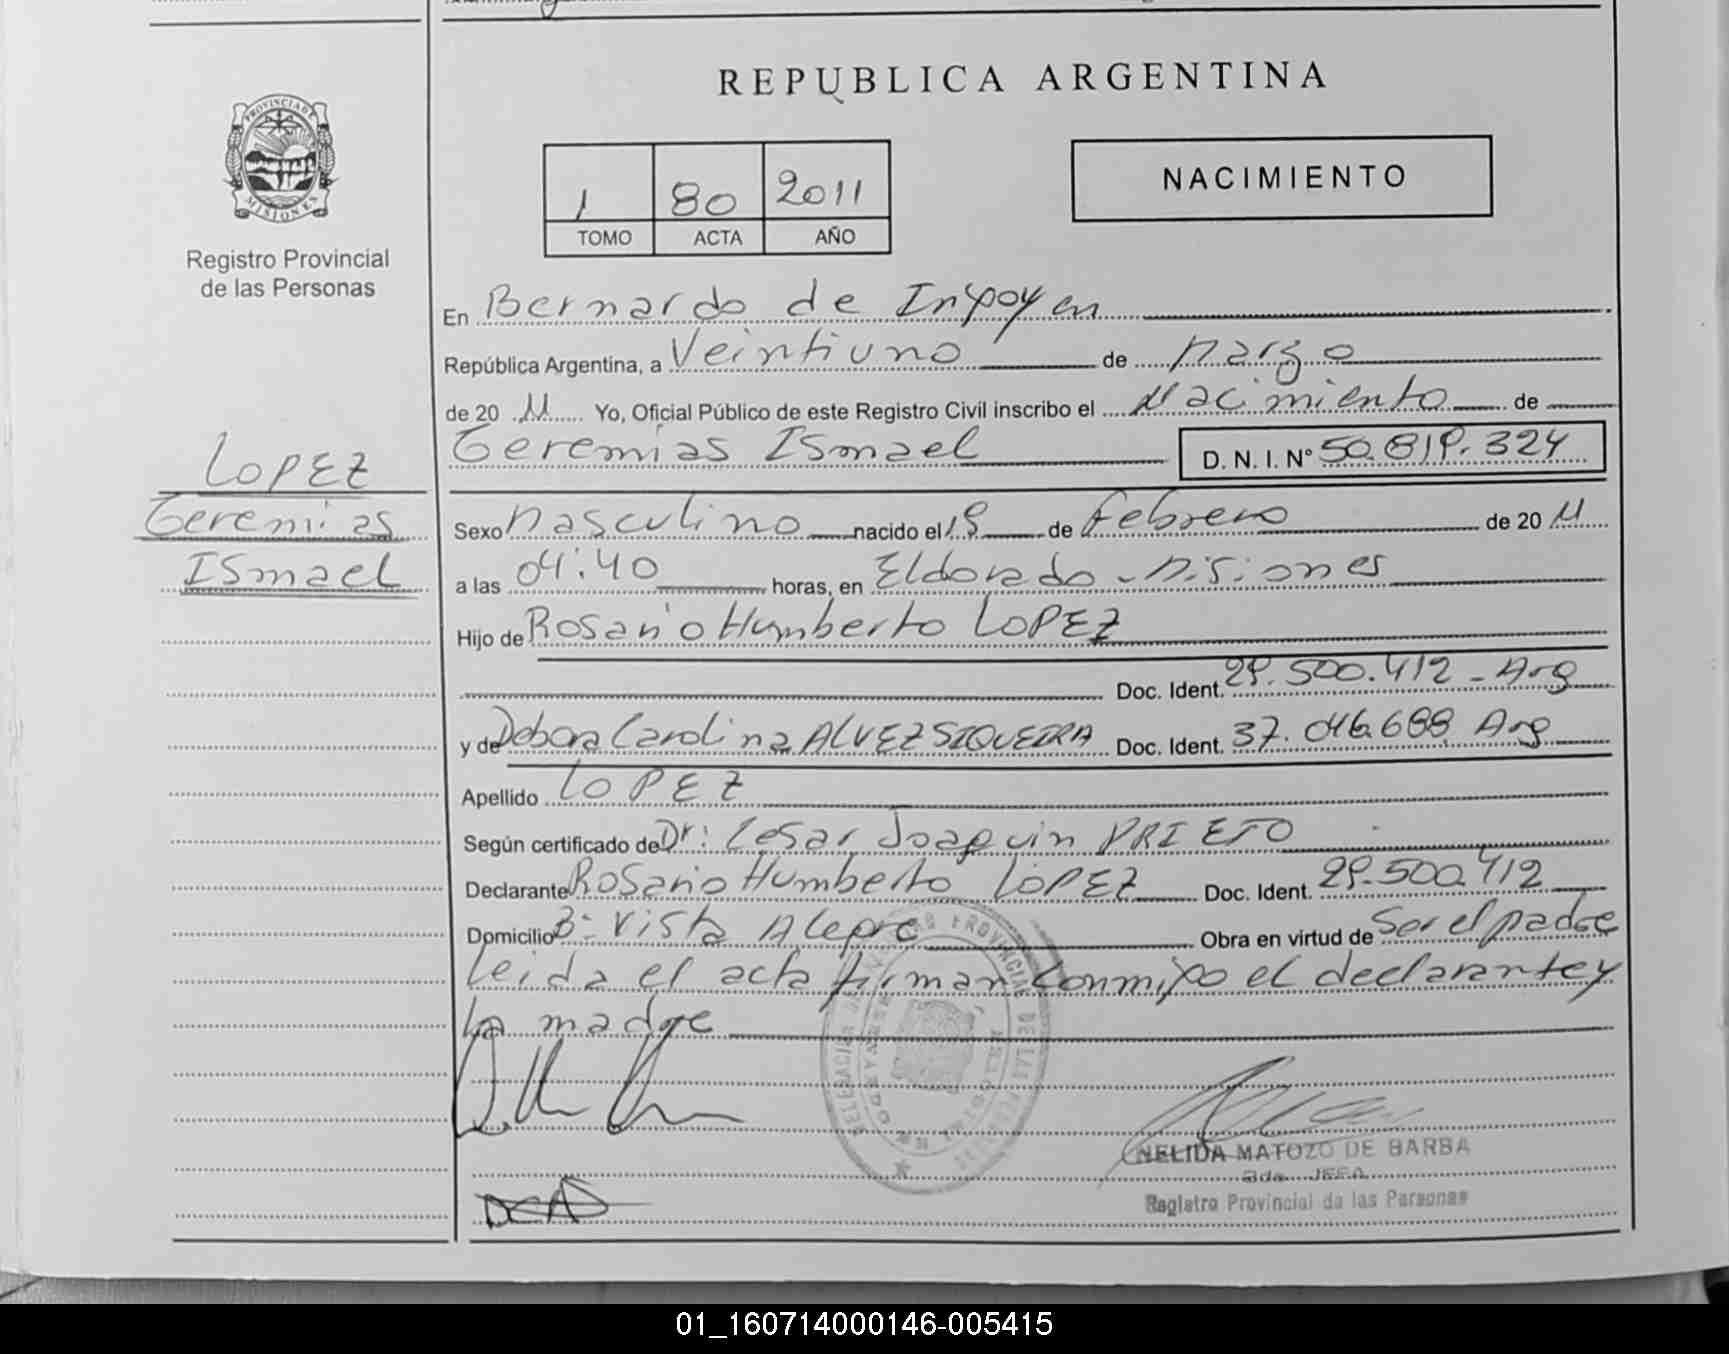 REPUBLICA ARGENTINA
PROVINCIA DE MISIONES
Registro Provincial
de las Personas
1 80 2011
TOMO ACTA AÑO
NACIMIENTO
En Bernardo de Irigoyen
República Argentina, a Veintiuno de Marzo
de 20 11 Yo, Oficial Público de este Registro Civil inscribo el Nacimiento de
Geremias Ismael D. N. I. N° 50.819.324
LOPEZ
Geremias
Ismael
Sexo Masculino nacido el 19 de Febrero de 20 11
a las 04:40 horas, en Eldorado - Misiones
Hijo de Rosario Humberto LOPEZ
Doc. Ident. 29.500.412 - Arg
y de Debora Carolina ALVEZ SIQUEIRA Doc. Ident. 37.046.688 Arg
Apellido LOPEZ
Según certificado de Dr: Cesar Joaquin PRIETO
Declarante Rosario Humberto LOPEZ Doc. Ident. 29.500.412
Domicilio B: Vista Alegre Obra en virtud de Ser el padre
Leida el acta firman conmigo el declarante y
la madre
NELIDA MATOZO DE BARBA
JEFA
Registro Provincial de las Personas
01_160714000146-005415